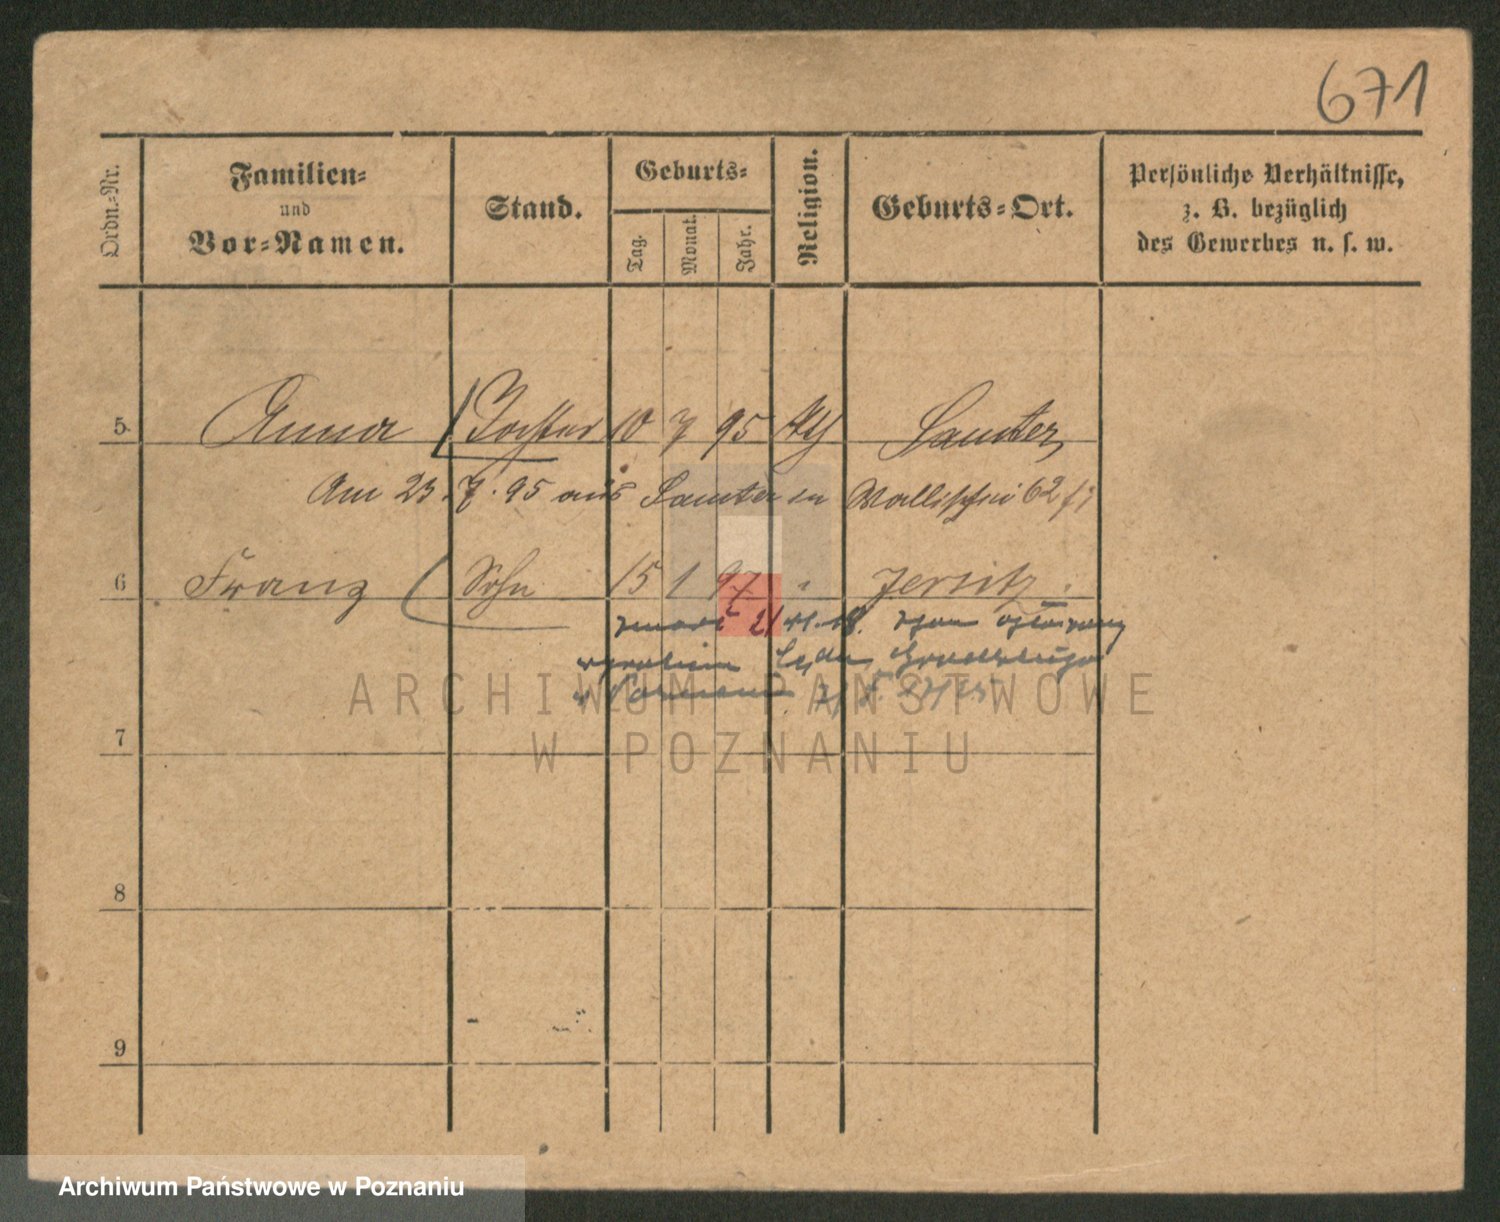 671
Ordn.-Nr. Familien- und Vor-Namen. Stand. Geburts- Tag. Monat. Jahr. Religion. Geburts-Ort. Persönliche Verhältnisse, z. B. bezüglich des Gewerbes u. s. w.
5. Anna Tochter 10 7 95 Samter
Am 23. 7. 95 aus Samter in Wallischei 62
6 Franz Sohn 15 1 97 " Jersitz.
21
ARCHIWUM PAŃSTWOWE
7
W POZNANIU
8
9
Archiwum Państwowe w Poznaniu